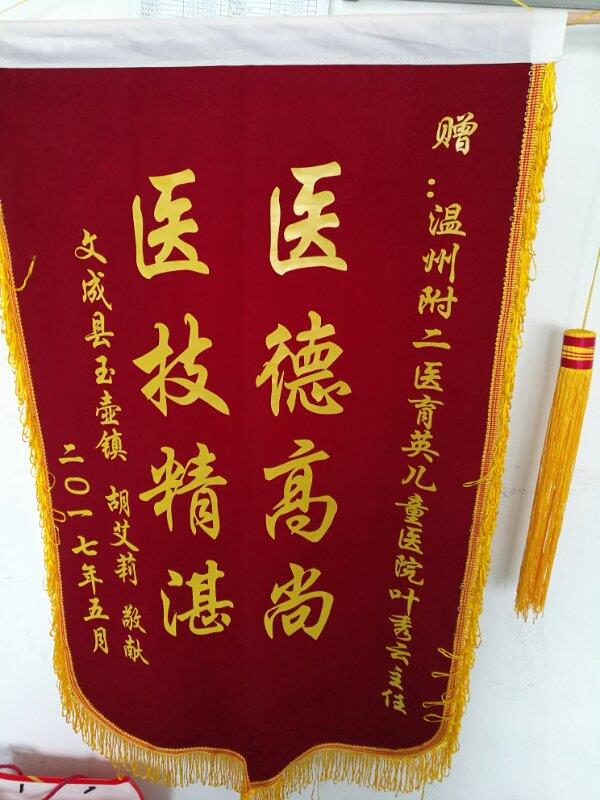 赠：温州附二医育英儿童医院叶秀云主任
医德高尚
医技精湛
文成县玉壶镇 胡艾莉 敬献
二〇一七年五月